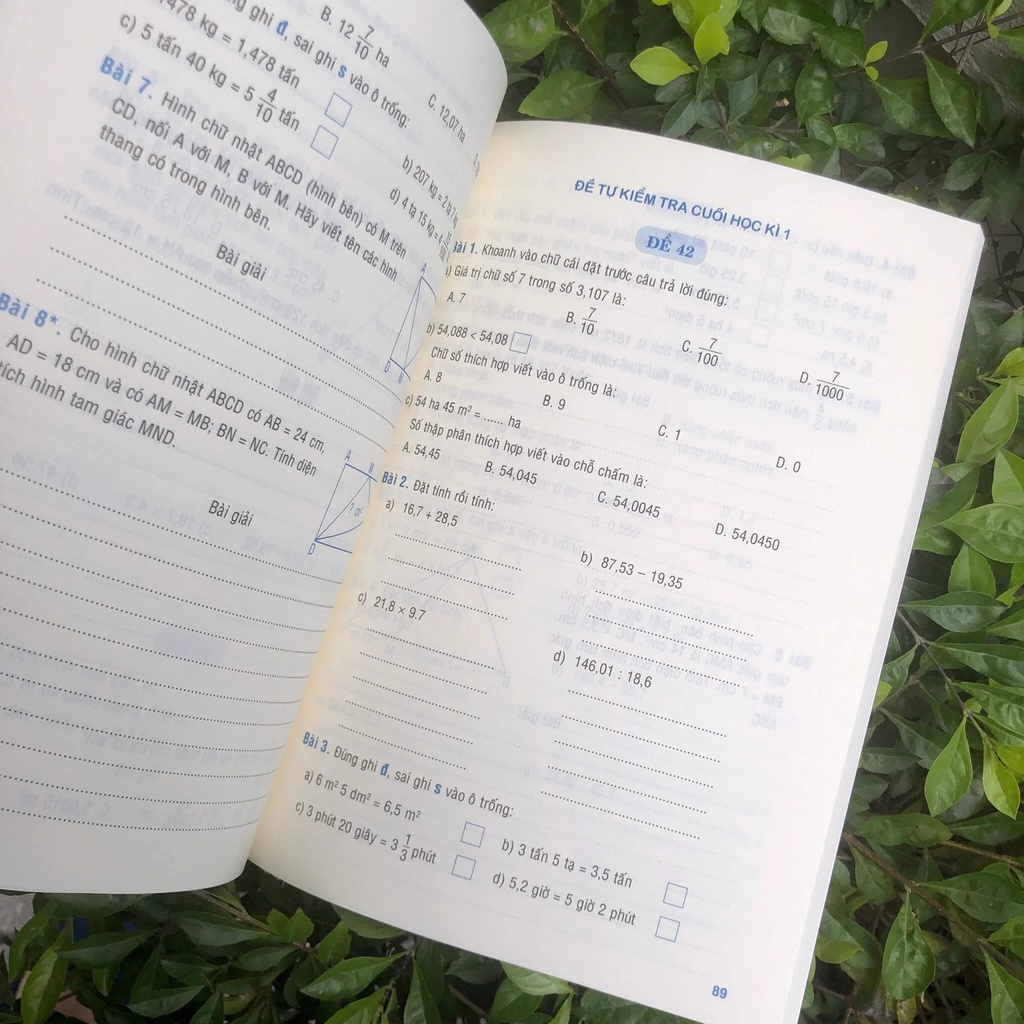 B. 12 7/10 ha
C. 12,07 ha
ghi đ, sai ghi s vào ô trống:
478 kg = 1,478 tấn
b) 207 kg = 2
c) 5 tấn 40 kg = 5 4/10 tấn
d) 4 tạ 15 kg = 4
Bài 7. Hình chữ nhật ABCD (hình bên) có M trên
CD, nối A với M, B với M. Hãy viết tên các hình
thang có trong hình bên.
Bài giải
Bài 8*. Cho hình chữ nhật ABCD có AB = 24 cm,
AD = 18 cm và có AM = MB; BN = NC. Tính diện
tích hình tam giác MND.
Bài giải
ĐỀ TỰ KIỂM TRA CUỐI HỌC KÌ 1
ĐỀ 42
Bài 1. Khoanh vào chữ cái đặt trước câu trả lời đúng:
) Giá trị chữ số 7 trong số 3,107 là:
A. 7
B. 7/10
C. 7/100
D. 7/1000
b) 54,088 < 54,08
Chữ số thích hợp viết vào ô trống là:
A. 8
B. 9
C. 1
D. 0
c) 54 ha 45 m² = ...... ha
Số thập phân thích hợp viết vào chỗ chấm là:
A. 54,45
B. 54,045
C. 54,0045
D. 54,0450
Bài 2. Đặt tính rồi tính:
a) 16,7 + 28,5
b) 87,53 – 19,35
c) 21,8 × 9.7
d) 146,01 : 18,6
Bài 3. Đúng ghi đ, sai ghi s vào ô trống:
a) 6 m² 5 dm² = 6,5 m²
b) 3 tấn 5 tạ = 3,5 tấn
c) 3 phút 20 giây = 3 1/3 phút
d) 5,2 giờ = 5 giờ 2 phút
89